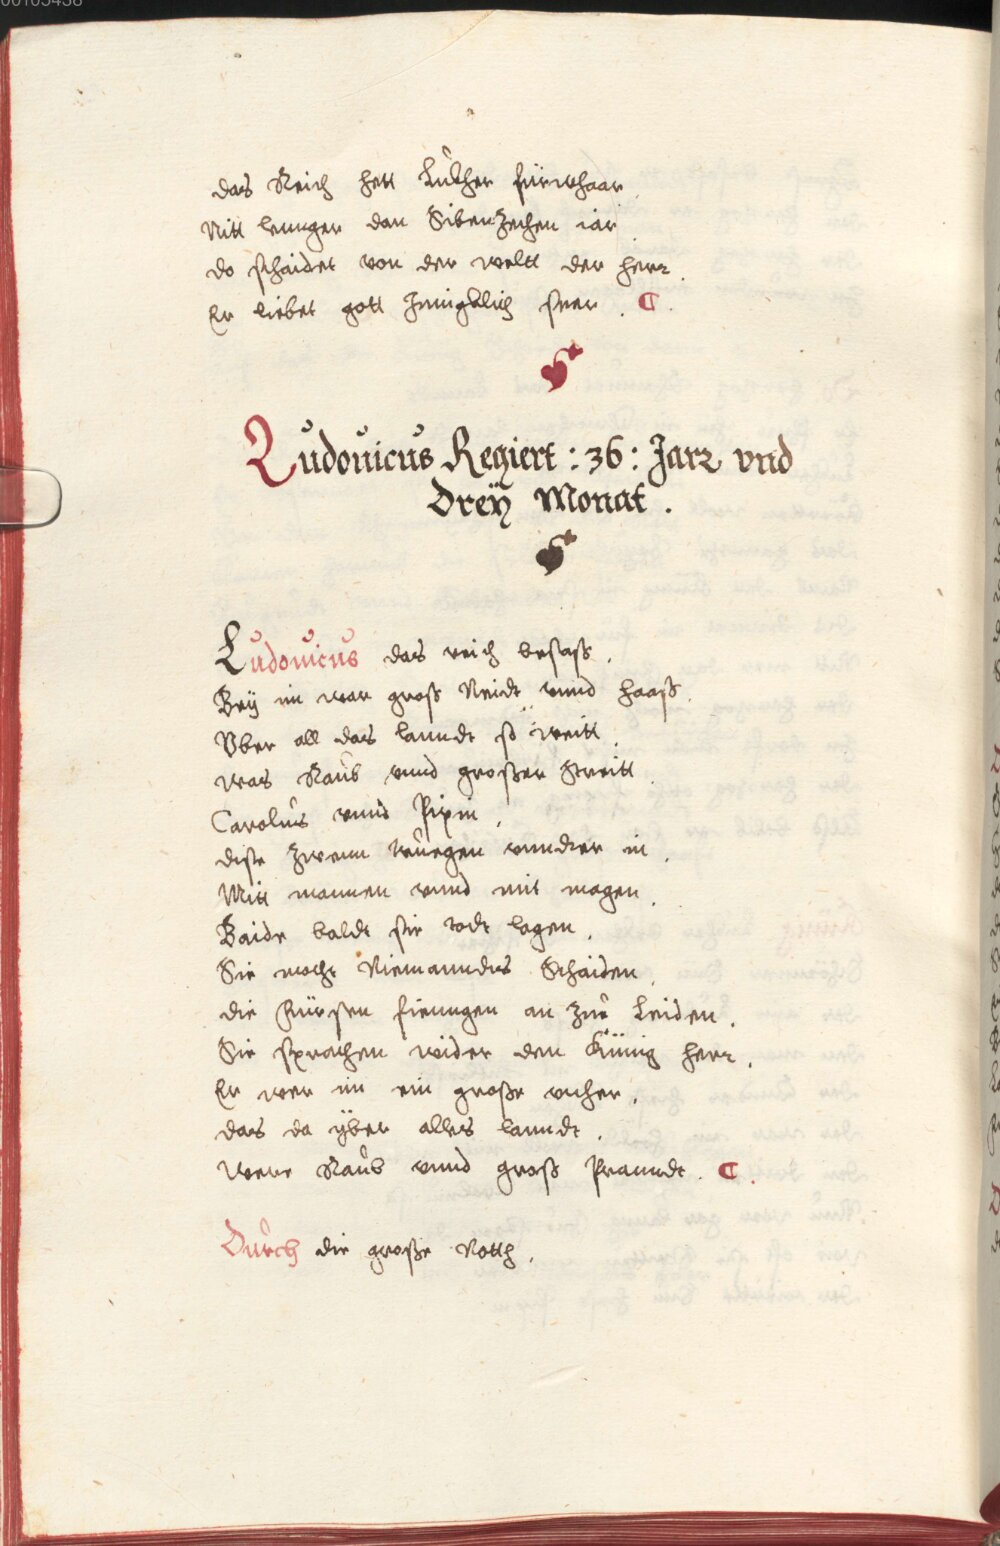 00105438
das Reich hett Lu̇ther fürwhaar
Nitt lennger dan Sibenzechen iar
do schaidet von der weltt der herr.
Er liebet gott Innigklich seer.
Ludouicus Regiert : 36 : Jarr vnd
Dreÿ Monat.
Ludouicus das reich besass,
Beÿ im war gross Neidt vnnd haass.
Vber all das lanndt so weitt,
was Raub vnnd grosser Streitt.
Carolus vnnd Pipin,
dise zwenn kriegen vnnder in,
Mitt mannen vnnd mit magen,
Baide baldt sie todt lagen,
Sie mocht Niemanndts Schaiden,
die Fürsen fienngen an zue Leiden,
Sie sprachen wider den Künig herr,
Er wer im ein grosse vnher,
das da ÿber alles lanndt,
were Raub vnnd gross Pranndt.
Durch die grosse Notth,